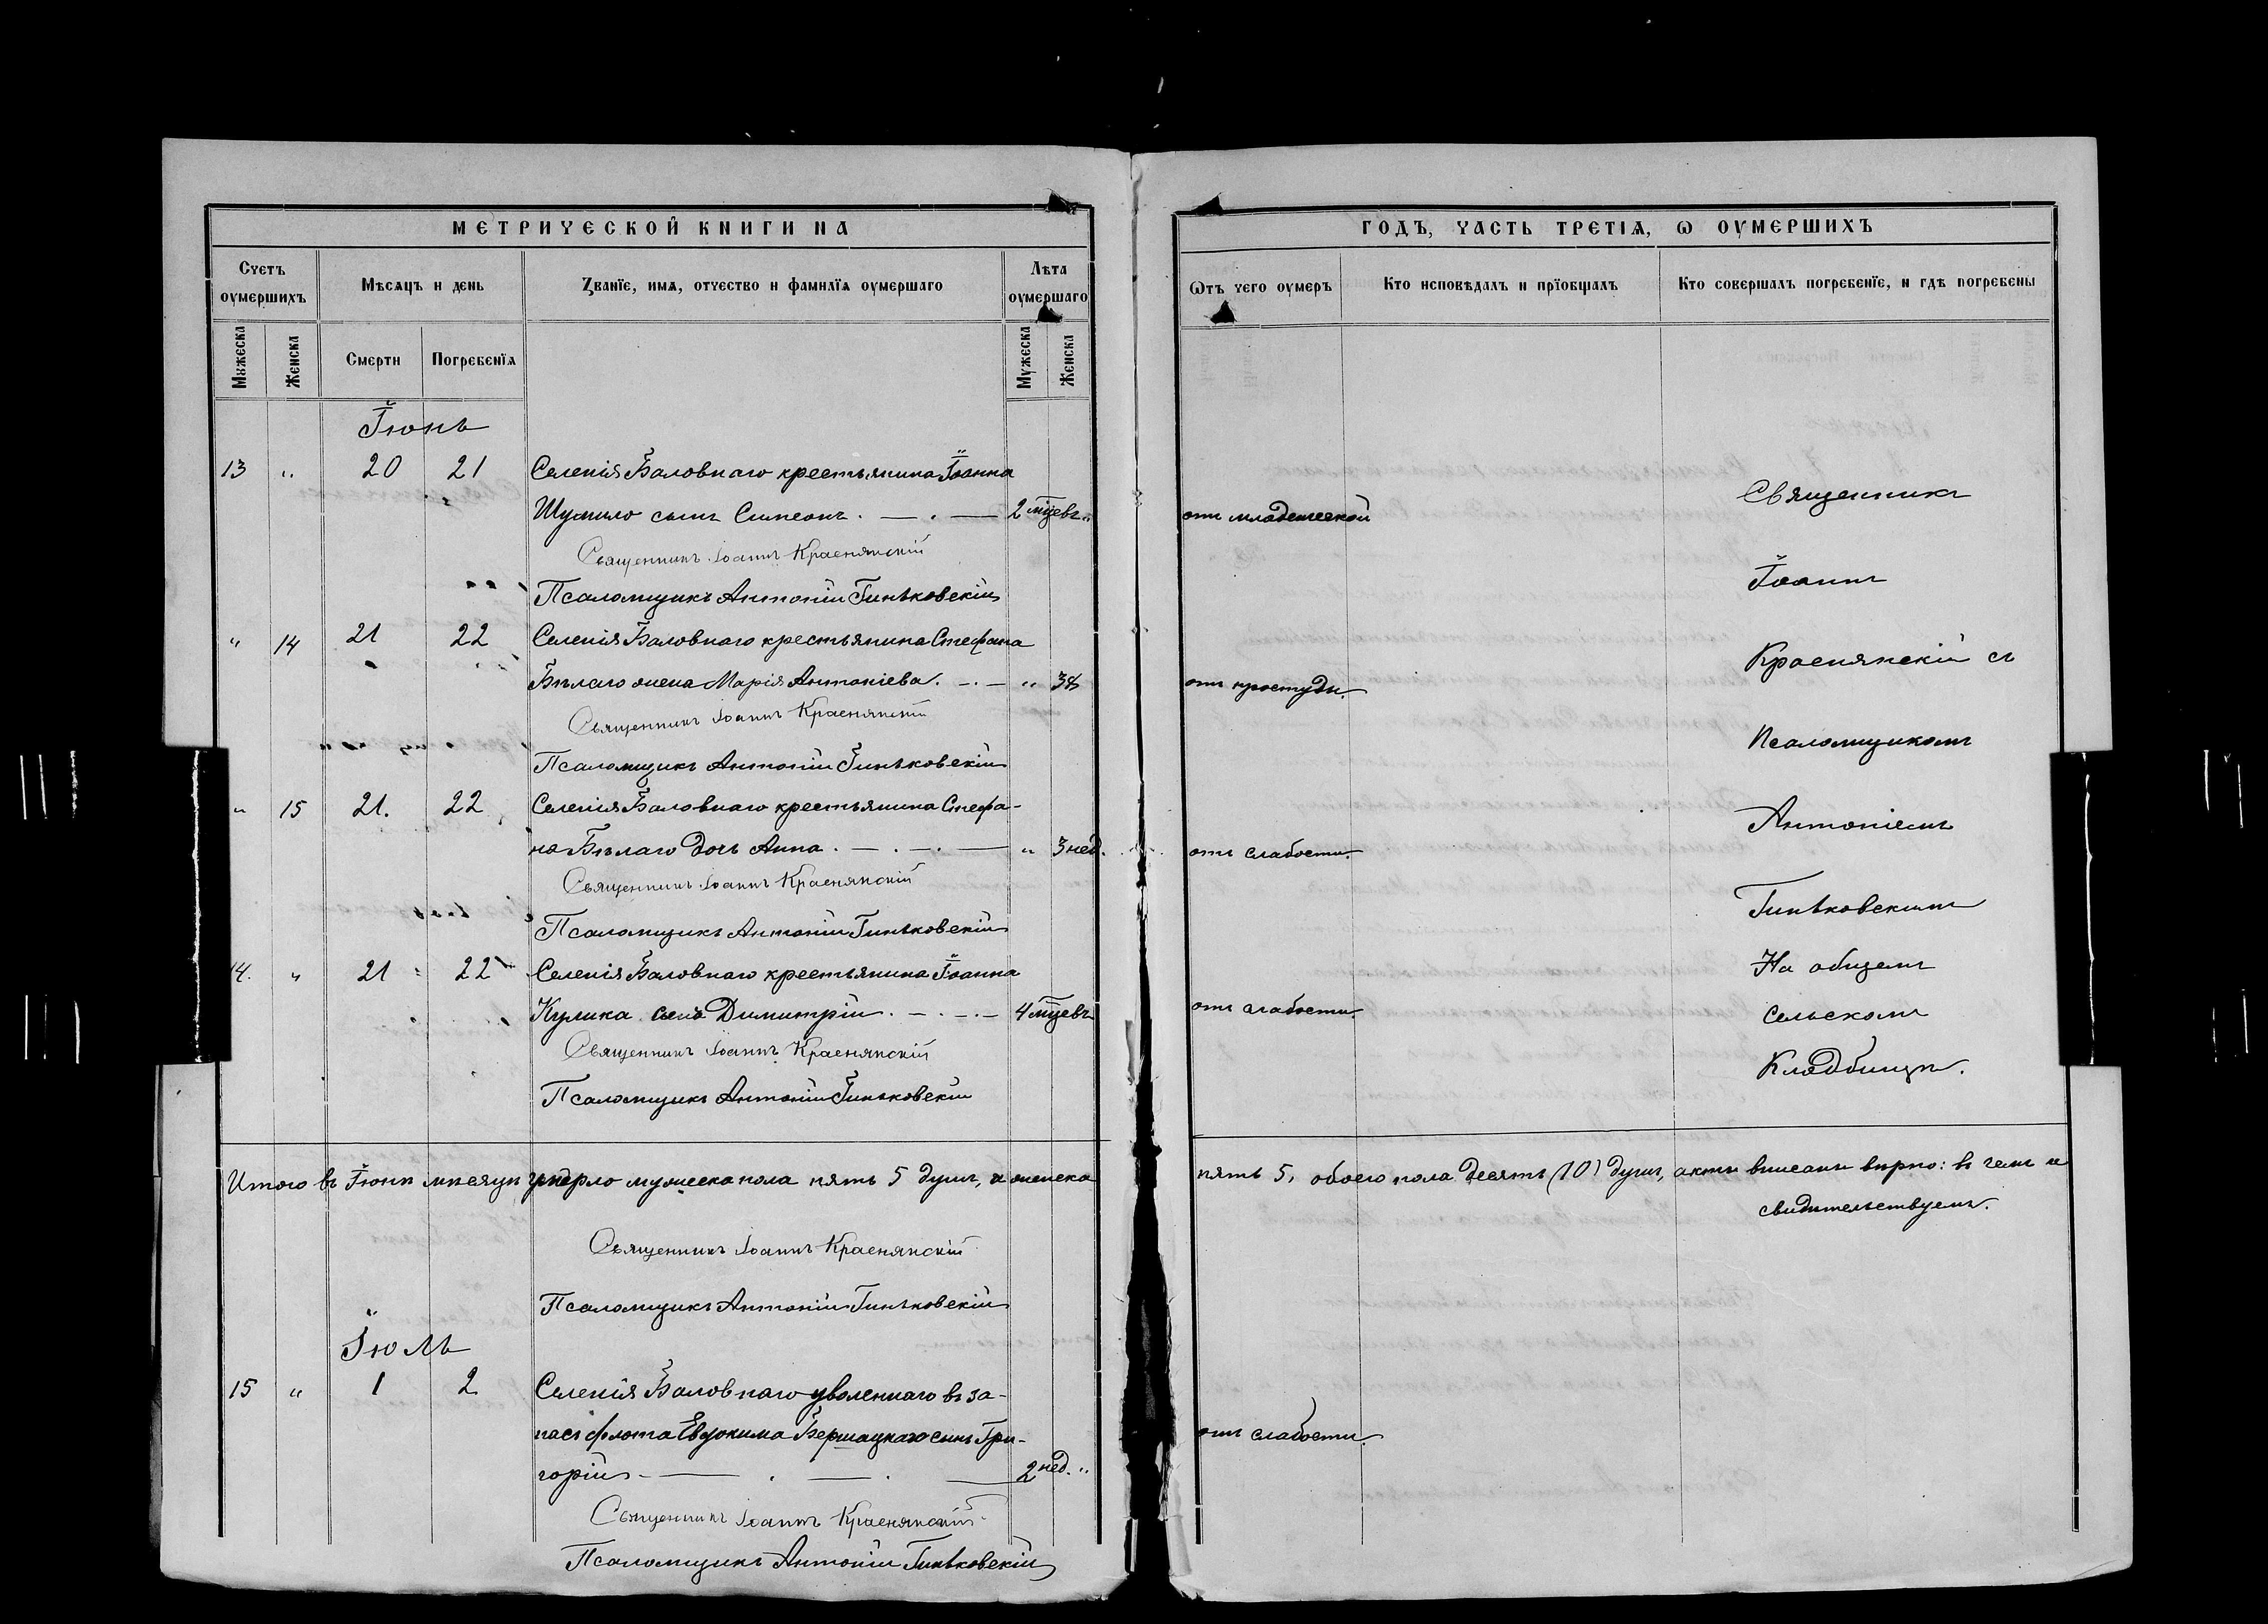 МЕТРИЧЕСКОЙ КНИГИ НА
Счетъ оумершихъ
Мѣсяцъ и день
Званїе, имѧ, отчество и фамилїѧ оумершаго
Лѣта оумершаго
Мꙋжеска
Женска
Смерти
Погребенїѧ
Мꙋжеска
Женска
Іюнь
13 " 20 21 Селенія Баловнаго крестьянина Іоанна
Шумило сынъ Симеонъ. — . — 2 мцевъ "
Священникъ Іоаннъ Краснянскій
Псаломщикъ Антоній Гиньковскій
" 14 21 22 Селенія Баловнаго крестьянина Стефана
Бѣлаго жена Марія Антоніева. — . — " 38
Священникъ Іоаннъ Краснянскій
Псаломщикъ Антоній Гиньковскій
" 15 21. 22 Селенія Баловнаго крестьянина Стефа-
на Бѣлаго дочь Анна . — . — . — " 3 нед.
Священникъ Іоаннъ Краснянскій
Псаломщикъ Антоній Гиньковскій
14. " 21 22 Селенія Баловнаго крестьянина Іоанна
Кулика сынъ Димитрій . — . — . — 4 мцевъ
Священникъ Іоаннъ Краснянскій
Псаломщикъ Антоній Гиньковскій
Итого въ Іюнѣ мѣсяцѣ умерло мужеска пола пять 5 душъ, и женска
Священникъ Іоаннъ Краснянскій
Псаломщикъ Антоній Гиньковскій
Іюль
15 " 1 2 Селенія Баловнаго уволеннаго въ за-
пасъ флота Евдокима Бершацкаго сынъ Гри-
горій — . — . — 2 нед. "
Священникъ Іоаннъ Краснянскій
Псаломщикъ Антоній Гиньковскій
ГОДЪ, ЧАСТЬ ТРЕТІѦ, Ѡ ОУМЕРШИХЪ
Ѿтъ чего оумеръ
Кто исповѣдалъ и прїобщалъ
Кто совершалъ погребенїе, и гдѣ погребены
отъ младенческой
Священникъ
Іоаннъ
отъ простуды.
Краснянскій съ
Псаломщикомъ
отъ слабости.
Антоніемъ
Гиньковскимъ
отъ слабости.
На общемъ
сельскомъ
Кладбищѣ.
пять 5, обоего пола десять (10) душъ, акты вписаны вѣрно: въ чемъ и
свидѣтельствуемъ.
отъ слабости.